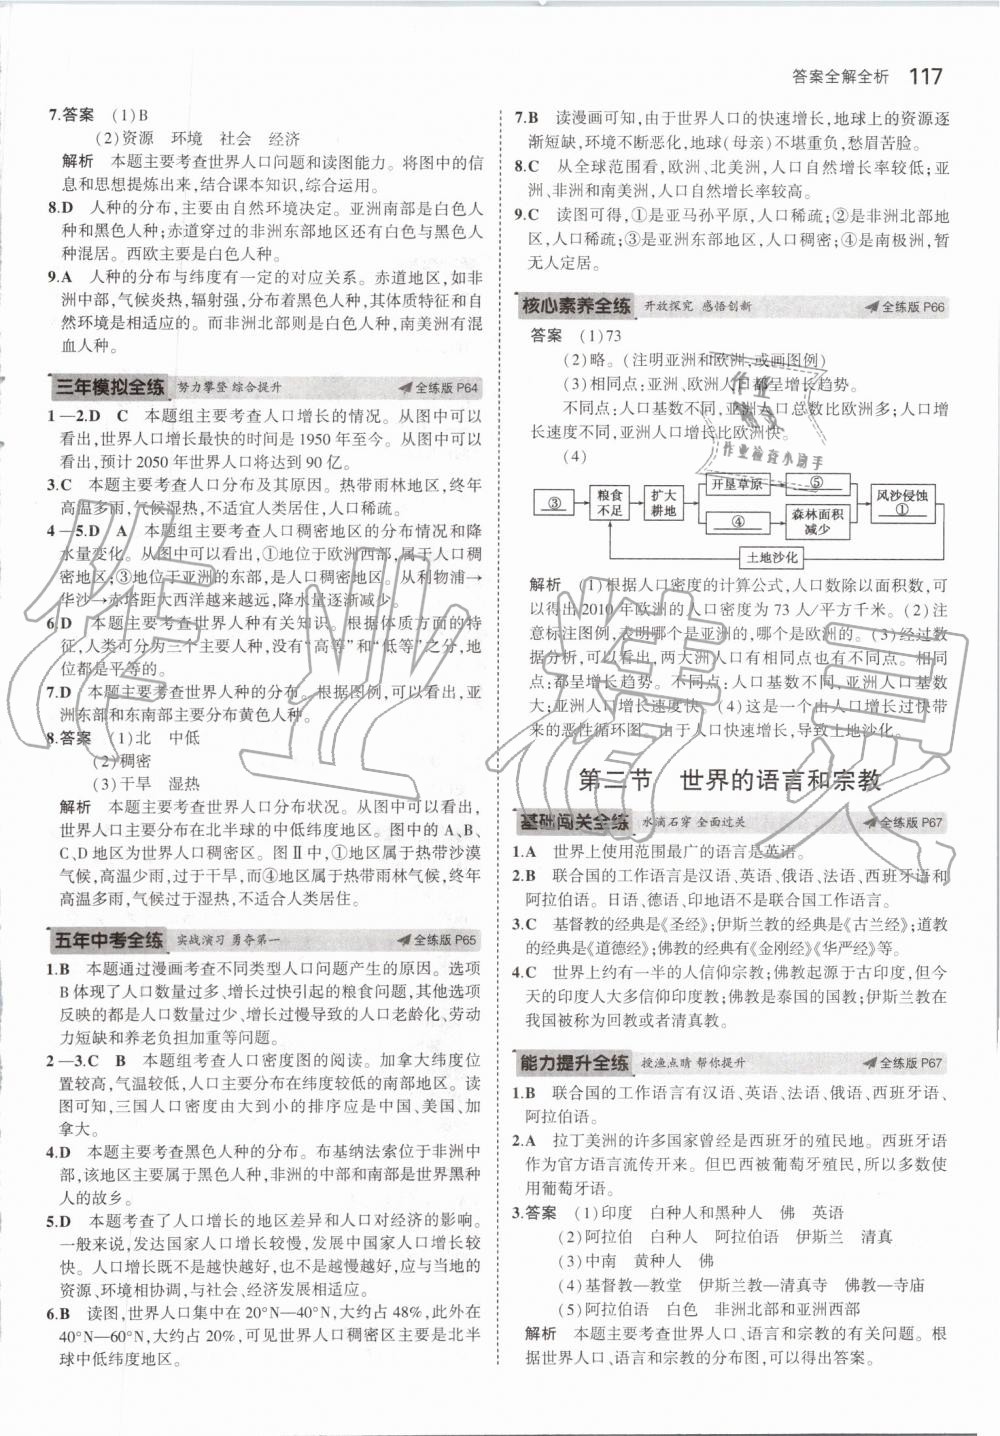 答案全解全析 117
7.答案 (1)B
(2)资源 环境 社会 经济
解析 本题主要考查世界人口问题和读图能力。将图中的信
息和思想提炼出来,结合课本知识,综合运用。
8.D 人种的分布,主要由自然环境决定。亚洲南部是白色人
种和黑色人种;赤道穿过的非洲东部地区还有白色与黑色人
种混居。西欧主要是白色人种。
9.A 人种的分布与纬度有一定的对应关系。赤道地区,如非
洲中部,气候炎热,辐射强,分布着黑色人种,其体质特征和自
然环境是相适应的。而非洲北部则是白种人,南美洲有混
血人种。
三年模拟全练 努力攀登 综合提升 全练版 P64
1—2.D C 本题组主要考查人口增长的情况。从图中可以
看出,世界人口增长最快的时间是 1950 年至今。从图中可以
看出,预计 2050 年世界人口将达到 90 亿。
3.C 本题主要考查人口分布及其原因。热带雨林地区,终年
高温多雨,气候湿热,不适宜人类居住,人口稀疏。
4—5.D A 本题组主要考查人口稠密地区的分布情况和降
水量变化。从图中可以看出,①地位于欧洲西部,属于人口稠
密地区;③地位于亚洲的东部,是人口稠密地区。从利物浦→
华沙→赤塔距大西洋越来越远,降水量逐渐减少。
6.D 本题主要考查世界人种有关知识。根据体质方面的特
征,人类可分为三个主要人种,没有“高等”和“低等”之分,地
位都是平等的。
7.D 本题主要考查世界人种的分布。根据图例,可以看出,亚
洲东部和东南部主要分布黄色人种。
8.答案 (1)北 中低
(2)稠密
(3)干旱 湿热
解析 本题主要考查世界人口分布状况。从图中可以看出,
世界人口主要分布在北半球的中低纬度地区。图中的 A、B、
C、D 地区中,B 地区为人口稠密区。图Ⅱ中,①地属于热带沙漠
气候,高温少雨,过于干旱,而④地属于热带雨林气候,终年
高温多雨,气候过于湿热,不适合人类居住。
五年中考全练 实战演习 勇夺第一 全练版 P65
1.B 本题通过漫画考查不同类型人口问题产生的原因。选项
B 体现了人口数量过多、增长过快引起的粮食问题,其他选项
反映的都是人口数量过少、增长过慢导致的人口老龄化、劳动
力短缺和养老负担加重等问题。
2—3.C B 本题组考查人口密度图的阅读。加拿大纬度位
置较高,气温较低,人口集中在纬度较低的南部地区。读
图可知,三国人口密度由大到小的排序应是中国、美国、加
拿大。
4.D 本题主要考查黑色人种的分布。布基纳法索位于非洲中
部,该地区主要属于黑色人种,非洲的中部和南部是世界黑种
人的故乡。
5.D 本题考查了人口增长的地区差异和人口对经济的影响。
一般来说,发达国家人口增长较慢,发展中国家人口增长较
快。人口增长既不是越快越好,也不是越慢越好,应与当地的
资源、环境相协调,与社会、经济发展相适应。
6.B 读图,世界人口集中在 20°N—40°N,大约占 48%,此外在
40°N—60°N,大约占 20%,可见世界人口稠密区主要是北半
球中低纬度地区。
7.B 读漫画可知,由于世界人口的快速增长,地球上的资源逐
渐短缺,环境不断恶化,地球(母亲)不堪重负,愁眉苦脸。
8.C 从全球范围看,欧洲、北美洲,人口自然增长率较低;亚
洲、非洲和南美洲,人口自然增长率较高。
9.C 读图可得,①是亚马孙平原,人口稀疏;②是非洲北部地
区,人口稀疏;③是亚洲东部地区,人口稠密;④是南极洲,暂
无人定居。
核心素养全练 开放探究 感悟创新 全练版 P66
答案 (1)73
(2)略。(注明亚洲和欧洲,或画图例)
(3)相同点:亚洲、欧洲人口都呈增长趋势。
不同点:人口基数不同,亚洲人口总数比欧洲多;人口增
长速度不同,亚洲人口增长比欧洲快。
(4)
③ 粮食不足 扩大耕地 开垦草原 ⑤ ④ 森林面积减少 风沙侵蚀 ① 土地沙化
解析 (1)根据人口密度的计算公式,人口数除以面积数,可
以得出2010 年欧洲的人口密度为 73 人/平方千米。(2)注
意标注图例,表明哪个是亚洲的,哪个是欧洲的。(3)经过数
据分析,可以看出,两大洲人口有相同点也有不同点。相同
点:都呈增长趋势。不同点:人口基数不同,亚洲人口基数
大;亚洲人口增长速度快。(4)这是一个由人口增长过快带
来的恶性循环图。由于人口快速增长,导致土地沙化。
第二节 世界的语言和宗教
基础闯关全练 水滴石穿 全面过关 全练版 P67
1.A 世界上使用范围最广的语言是英语。
2.B 联合国的工作语言是汉语、英语、俄语、法语、西班牙语和
阿拉伯语。日语、德语、印地语不是联合国工作语言。
3.C 基督教的经典是《圣经》;伊斯兰教的经典是《古兰经》;道教
的经典是《道德经》;佛教的经典有《金刚经》《华严经》等。
4.C 世界上约有一半的人信仰宗教;佛教起源于古印度,但今
天的印度人大多信仰印度教;佛教是泰国的国教;伊斯兰教在
我国被称为回教或者清真教。
能力提升全练 授渔点睛 帮你提升 全练版 P67
1.B 联合国的工作语言有汉语、英语、法语、俄语、西班牙语、
阿拉伯语。
2.A 拉丁美洲的许多国家曾经是西班牙的殖民地。西班牙语
作为官方语言流传开来。但巴西被葡萄牙殖民,所以多数使
用葡萄牙语。
3.答案 (1)印度 白种人和黑种人 佛 英语
(2)阿拉伯 白种人 阿拉伯语 伊斯兰 清真
(3)中南 黄种人 佛
(4)基督教—教堂 伊斯兰教—清真寺 佛教—寺庙
(5)阿拉伯语 白色 非洲北部和亚洲西部
解析 本题主要考查世界人口、语言和宗教的有关问题。根
据世界人口、语言和宗教的分布图,可以得出答案。
作业精灵
作业检查小助手